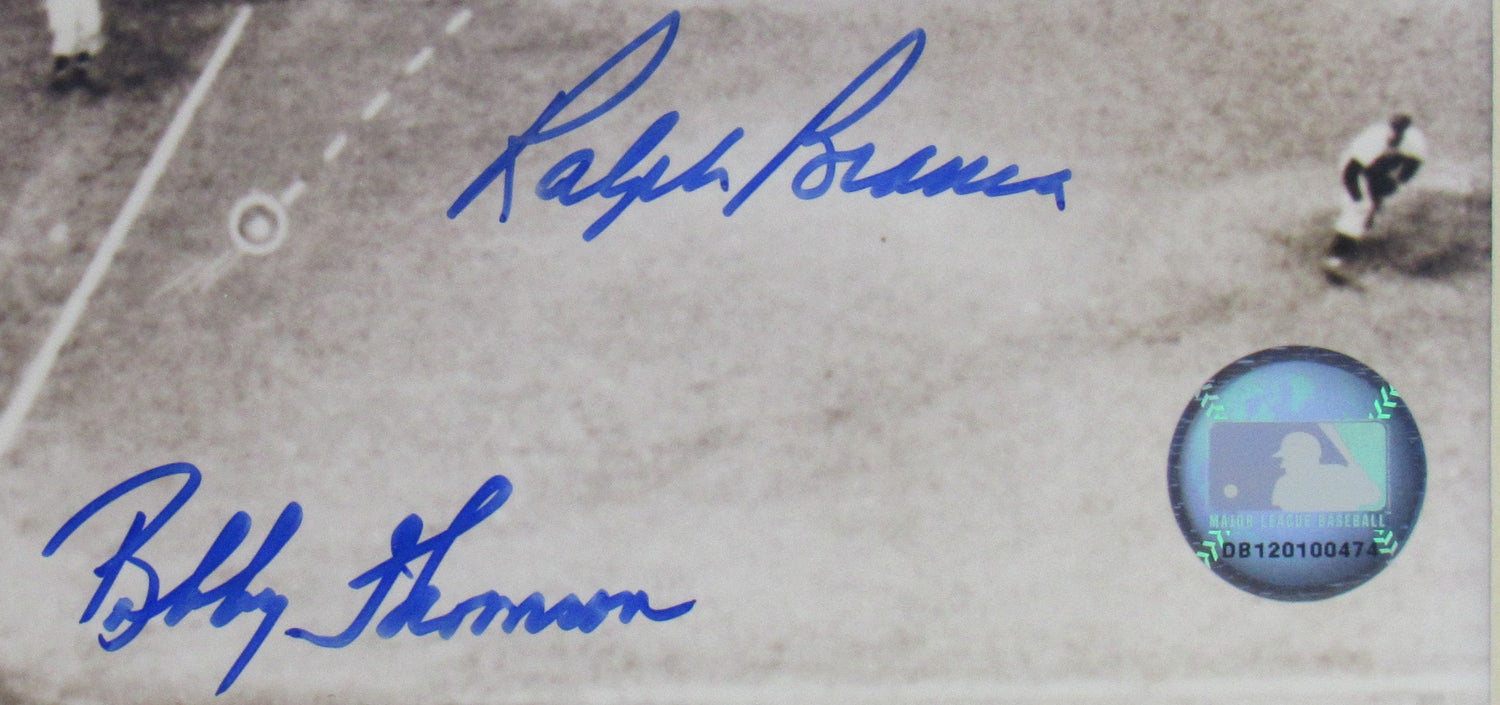 Ralph Branca
Bobby Thomson
MAJOR LEAGUE BASEBALL
DB120100474